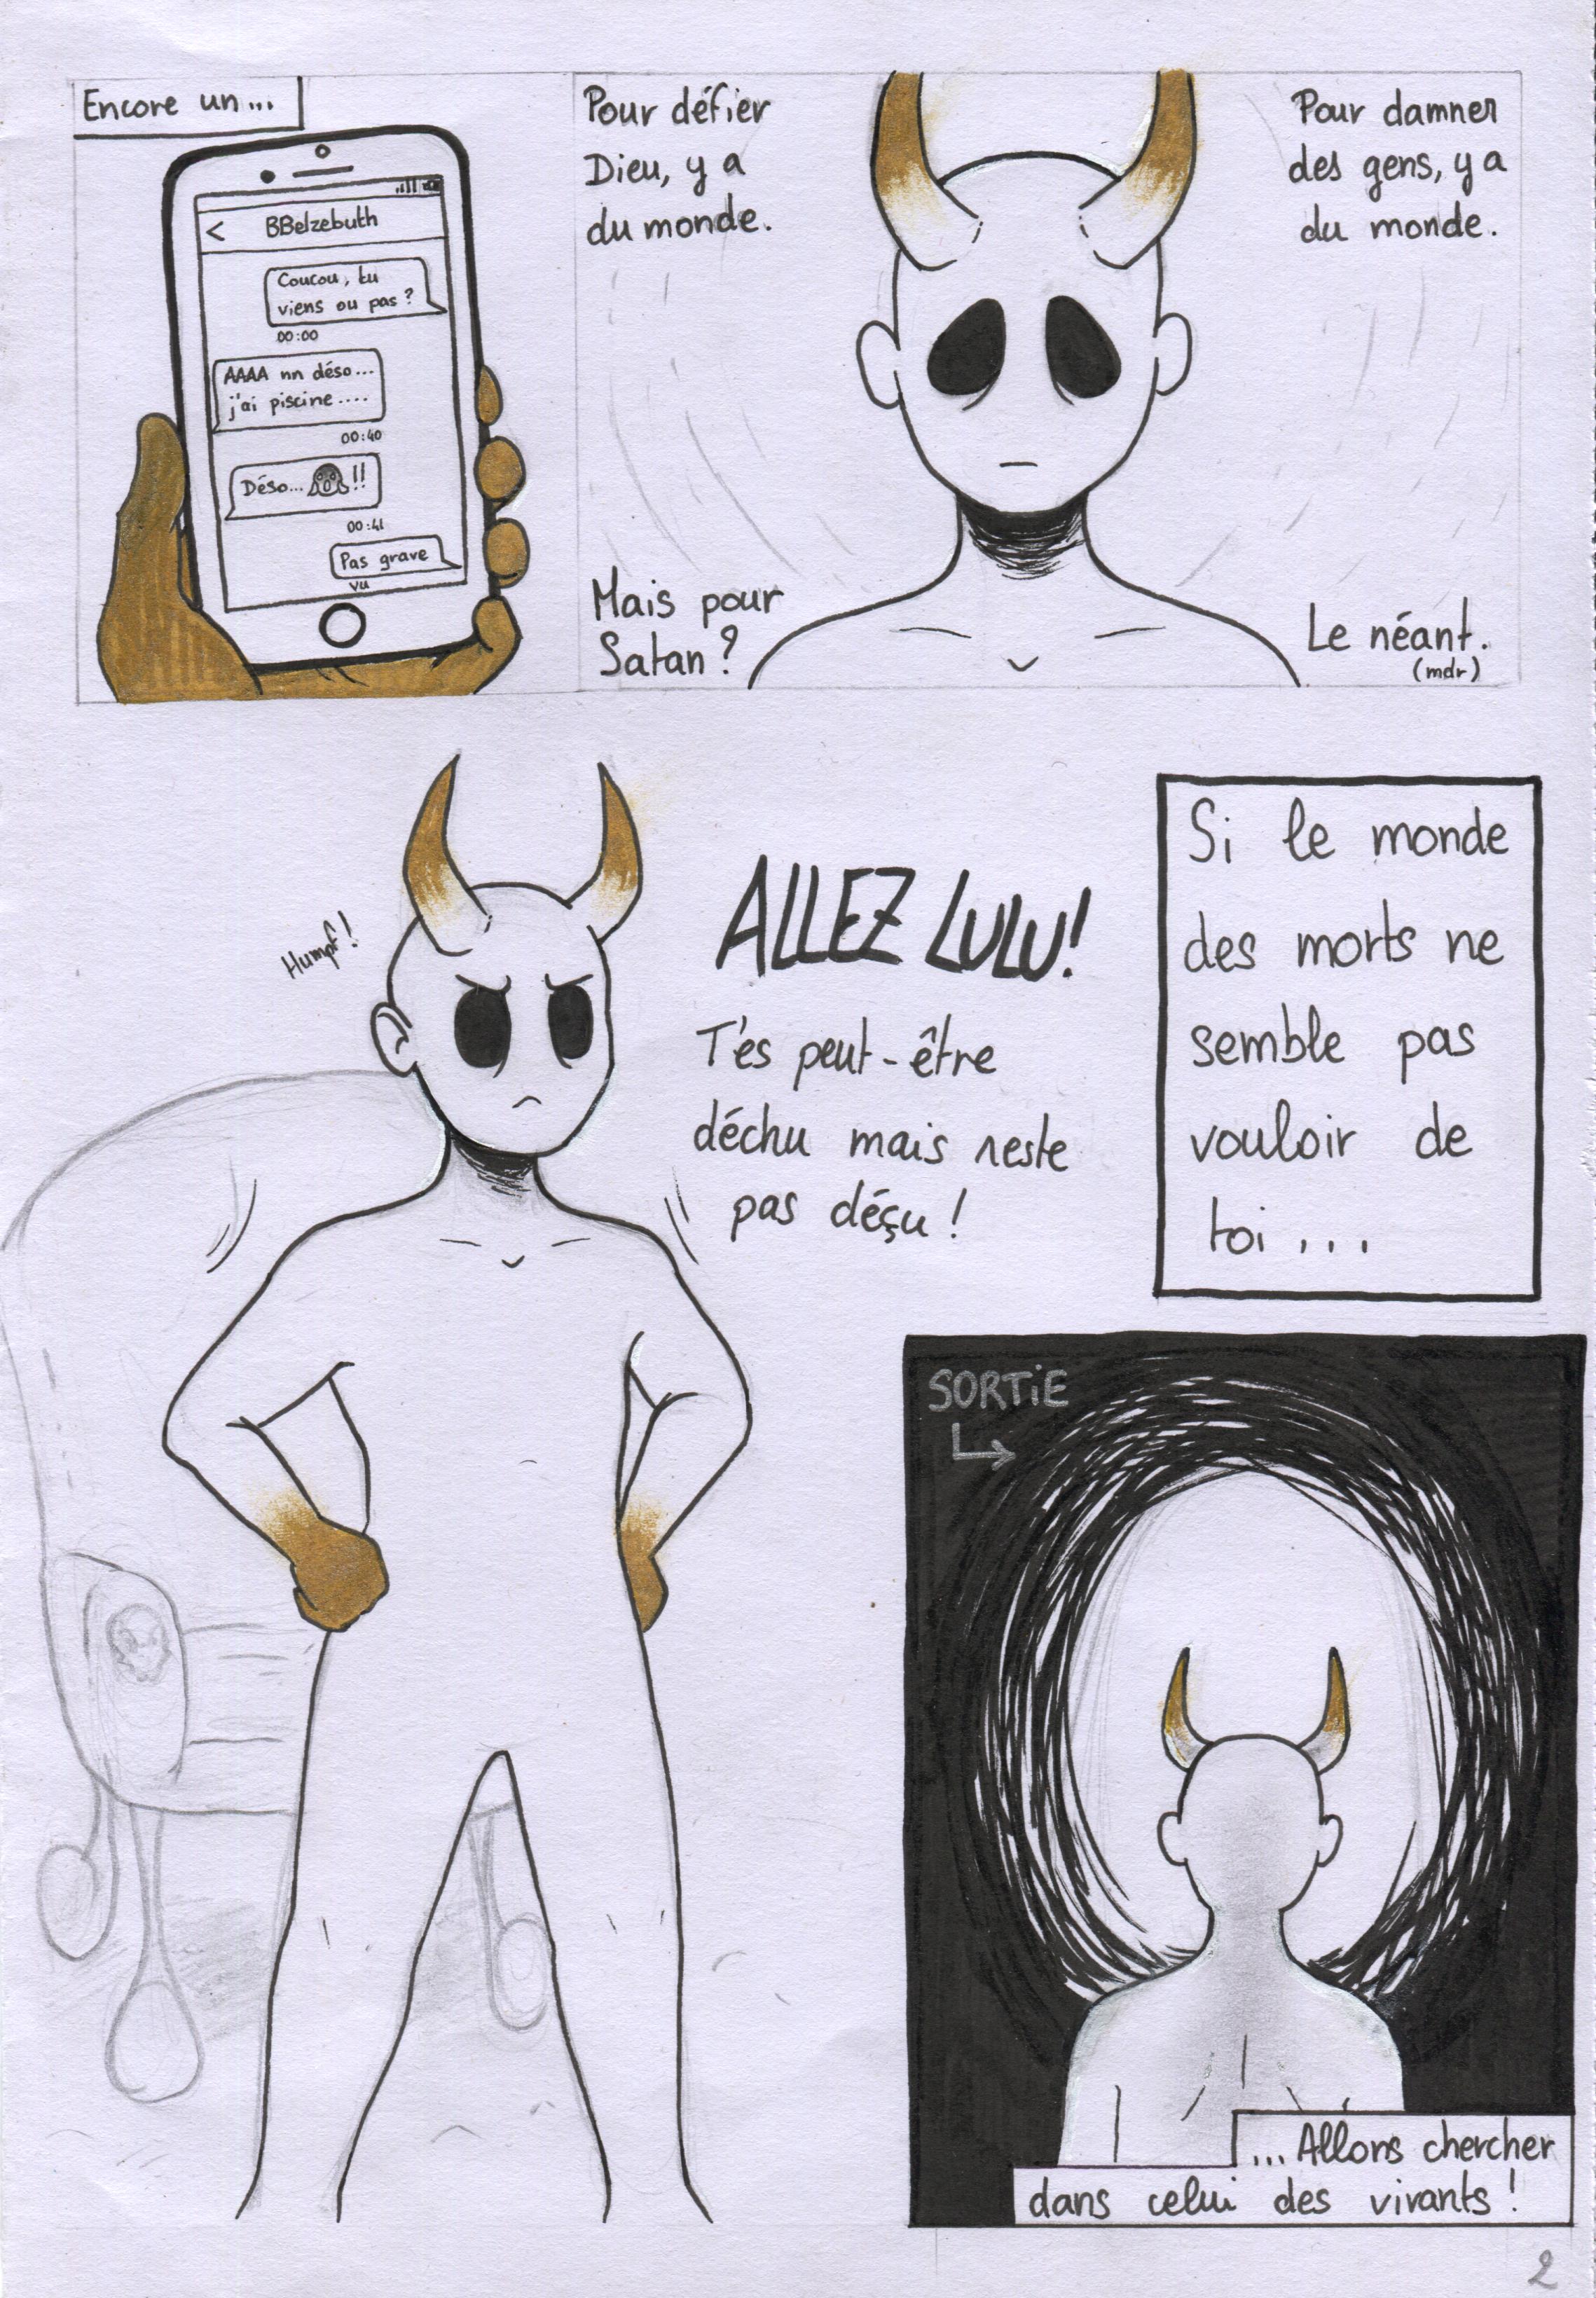 Encore un...
< BBelzebuth
Coucou, tu
viens ou pas ?
00:00
AAAA nn déso...
j'ai piscine....
00:40
Déso... !!
00:41
Pas grave
vu
Pour défier
Dieu, y a
du monde.
Pour damner
des gens, y a
du monde.
Mais pour
Satan ?
Le néant.
(mdr)
Humpf !
ALLEZ LULU !
T'es peut-être
déchu mais reste
pas déçu !
Si le monde
des morts ne
semble pas
vouloir de
toi ...
SORTiE
...Allons chercher
dans celui des vivants !
2